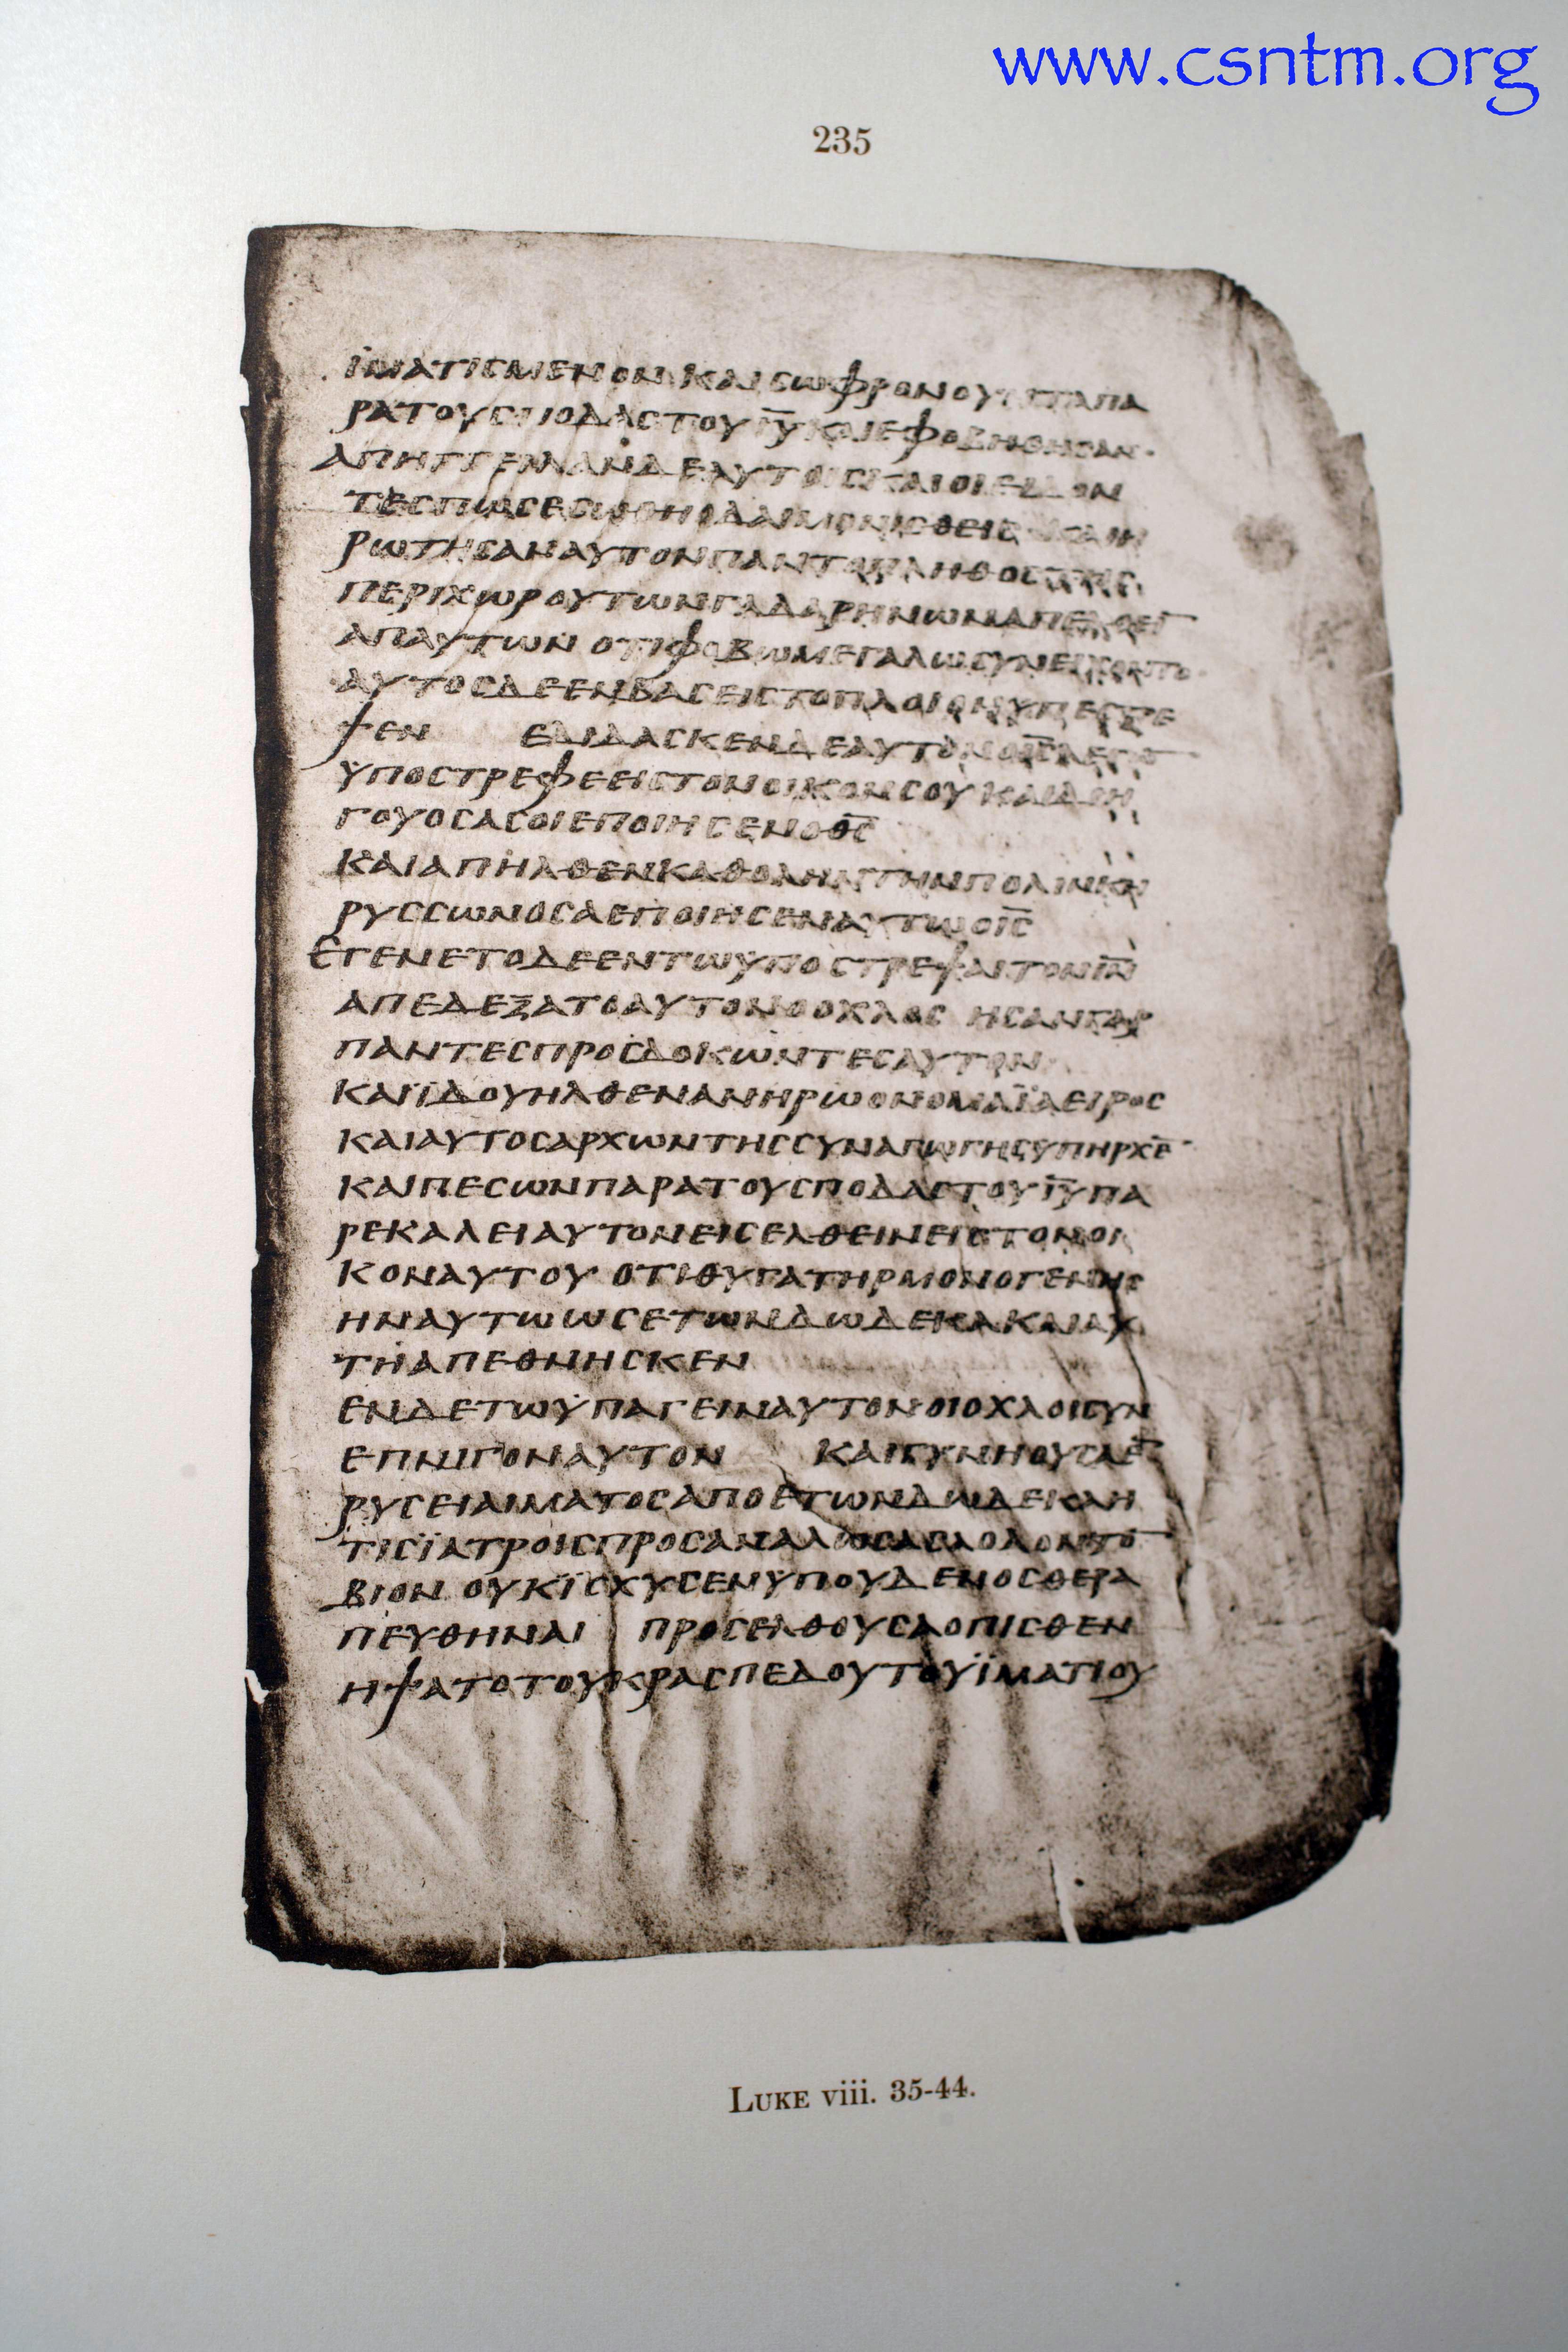 www.csntm.org
235
ΪΜΑΤΙϹΜΕΝΟΝ ΚΑΙ ϹΩΦΡΟΝΟΥ ΠΑ
ΡΑΤΟΥϹΠΟΔΑϹΤΟΥΙ̅Υ̅ΚΑΙΕΦΟΒΗΘΗϹΑΝ·
ΑΠΗΓΓΕΙΛΑΝΔΕΑΥΤΟΙϹΚΑΙΟΙΕΙΔΟΝ
ΤΕϹΠΩϹΕϹΩΘΗΟΔΑΙΜΟΝΙϹΘΕΙϹ
ΡΩΤΗϹΑΝΑΥΤΟΝΠΑΝΤΟΠΛΗΘΟϹΤΗϹ
ΠΕΡΙΧΩΡΟΥΤΩΝΓΑΔΑΡΗΝΩΝΑΠΕΛΘΕΙ̅
ΑΠΑΥΤΩΝ ΟΤΙΦΟΒΩΜΕΓΑΛΩϹΥΝΕΙΧΟΝΤΟ
ΑΥΤΟϹΔΕΕΝΒΑϹΕΙϹΤΟΠΛΟΙΟΝΫΠΕϹΤΡΕ
ΨΕΝ ΕΔΙΔΑϹΚΕΝΔΕΑΥΤΟΝΟΙ̅Ϲ̅ΛΕΓΩ̅
ΫΠΟϹΤΡΕΦΕΕΙϹΤΟΝΟΙΚΟΝϹΟΥΚΑΙΔΙΗ
ΓΟΥΟϹΑϹΟΙΕΠΟΙΗϹΕΝΟΘ̅Ϲ̅
ΚΑΙΑΠΗΛΘΕΝΚΑΘΟΛΗΝΤΗΝΠΟΛΙΝΚΗ
ΡΥϹϹΩΝΟϹΑΕΠΟΙΗϹΕΝΑΥΤΩΟΙ̅Ϲ̅
ΕΓΕΝΕΤΟΔΕΕΝΤΩΥΠΟϹΤΡΕΨΑΙΤΟΝΙ̅Ν̅
ΑΠΕΔΕΞΑΤΟΑΥΤΟΝΟΟΧΛΟϹ ΗϹΑΝΓΑΡ
ΠΑΝΤΕϹΠΡΟϹΔΟΚΩΝΤΕϹΑΥΤΟΝ
ΚΑΙΪΔΟΥΗΛΘΕΝΑΝΗΡΩΟΝΟΜΑΪΑΕΙΡΟϹ
ΚΑΙΑΥΤΟϹΑΡΧΩΝΤΗϹϹΥΝΑΓΩΓΗϹΥΠΗΡΧΕ̅
ΚΑΙΠΕϹΩΝΠΑΡΑΤΟΥϹΠΟΔΑϹΤΟΥΙ̅Υ̅ΠΑ
ΡΕΚΑΛΕΙΑΥΤΟΝΕΙϹΕΛΘΕΙΝΕΙϹΤΟΝΟΙ
ΚΟΝΑΥΤΟΥ ΟΤΙΘΥΓΑΤΗΡΜΟΝΟΓΕΝΗϹ
ΗΝΑΥΤΩΩϹΕΤΩΝΔΩΔΕΚΑΚΑΙΑΥ
ΤΗΑΠΕΘΝΗϹΚΕΝ
ΕΝΔΕΤΩΫΠΑΓΕΙΝΑΥΤΟΝΟΙΟΧΛΟΙϹΥΝ
ΕΠΝΙΓΟΝΑΥΤΟΝ ΚΑΙΓΥΝΗΟΥϹΑΕ̅
ΡΥϹΕΙΑΙΜΑΤΟϹΑΠΟΕΤΩΝΔΩΔΕΚΑΗ
ΤΙϹΪΑΤΡΟΙϹΠΡΟϹΑΝΑΛΩϹΑϹΑΟΛΟΝΤΟ̅
ΒΙΟΝ ΟΥΚΪϹΧΥϹΕΝΥΠΟΥΔΕΝΟϹΘΕΡΑ
ΠΕΥΘΗΝΑΙ ΠΡΟϹΕΛΘΟΥϹΑΟΠΙϹΘΕΝ
ΗΨΑΤΟΤΟΥΚΡΑϹΠΕΔΟΥΤΟΥΪΜΑΤΙΟΥ
LUKE viii. 35-44.